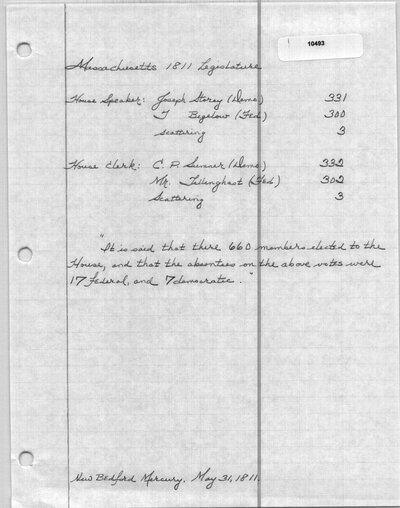 10493
Massachusetts 1811 Legislature
House Speaker: Joseph Storey (Demo.) 331
T Bigelow (Fed.) 300
Scattering 3
House Clerk: C. P. Sumner (Demo.) 332
Mr. Tillinghast (Fed.) 302
Scattering 3
"It is said that there 660 members elected to the
House, and that the absentees on the above votes were
17 Federal, and 7 democratic."
New Bedford Mercury. May 31, 1811.